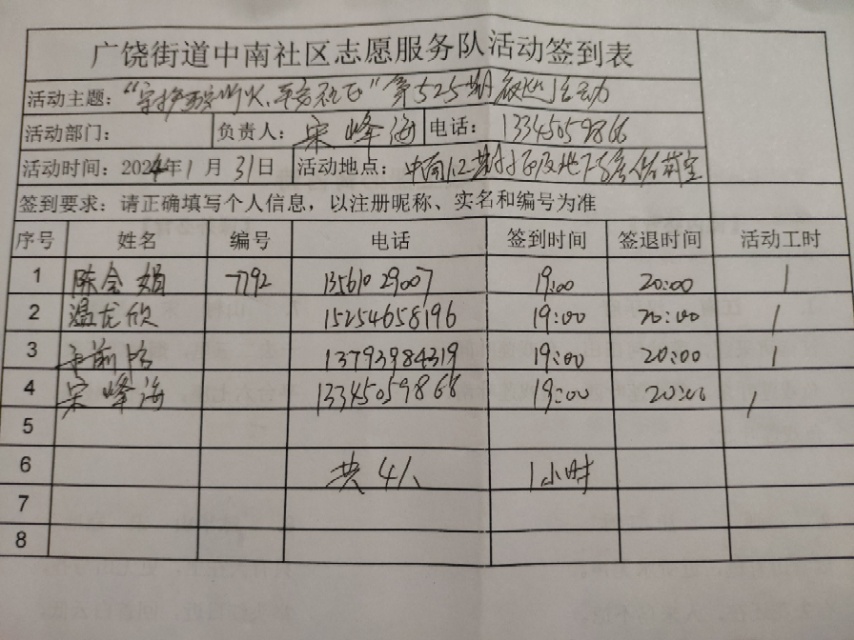 广饶街道中南社区志愿服务队活动签到表
活动主题：“守护万家灯火，平安社区”第525期夜巡活动
活动部门： 负责人： 宋峰海 电话： 13345059866
活动时间：2024年1月31日 活动地点：中南
签到要求：请正确填写个人信息，以注册昵称、实名和编号为准
序号 姓名 编号 电话 签到时间 签退时间 活动工时
1 陈会娟 7792 13561029007 19:00 20:00 1
2 温龙欣 15254658196 19:00 20:00 1
3 13793984319 19:00 20:00 1
4 宋峰海 13345059868 19:00 20:00 1
5
6 共4人 1小时
7
8